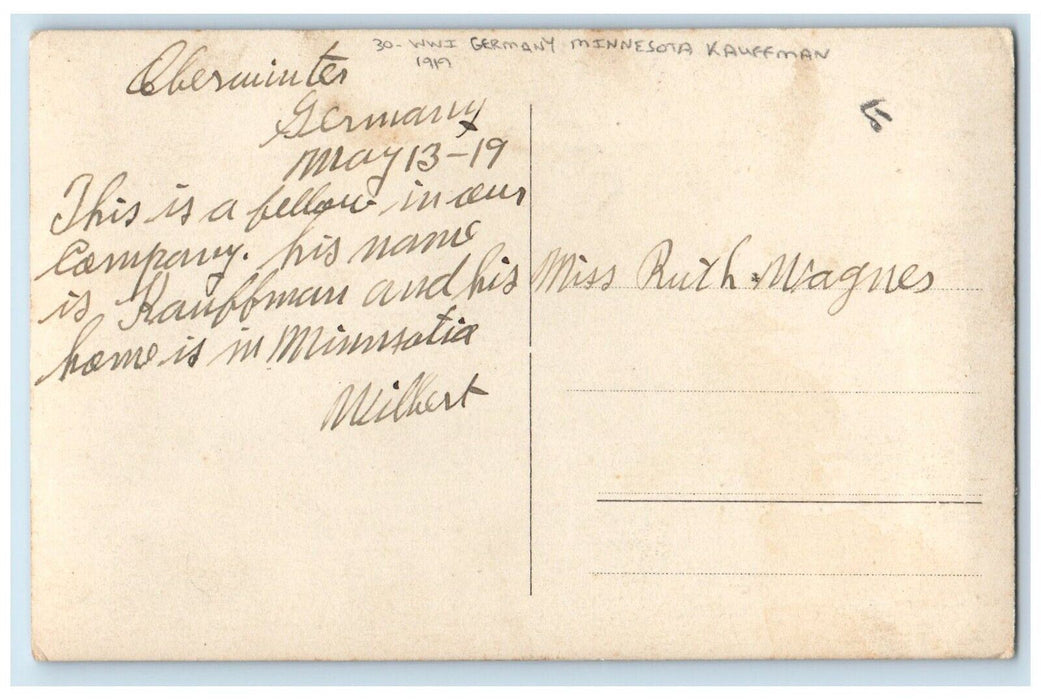 30- WWI GERMANY MINNESOTA KAUFFMAN
1919
Oberwinter
Germany
May 13-19
This is a fellow in our
Company. his name
is Kauffman and his
home is in Minnsatia
Wilbert
Miss Ruth Wagner